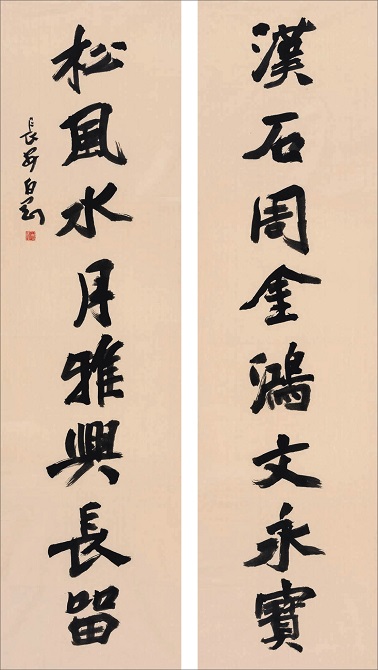 漢石周金鴻文永寶
松風水月雅興長留
長安自力